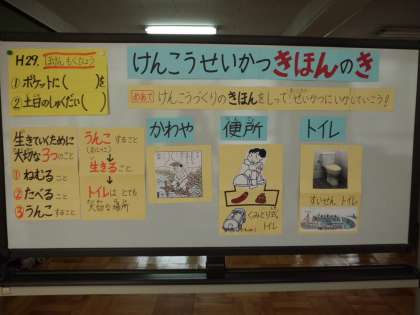 けんこうせいかつ きほんのき
H29.
①ポケットに( )を
②土日のしゅくだい( )
めあて けんこうづくりのきほんをしって!せいかつにいかしていこう!
生きていくために
大切な3つのこと
①ねむること
②たべること
③うんこすること
うんこすること
↓
生きること
↓
トイレは とても
大切な場所
かわや
便所
くみとり式
トイレ
トイレ
すいせんトイレ